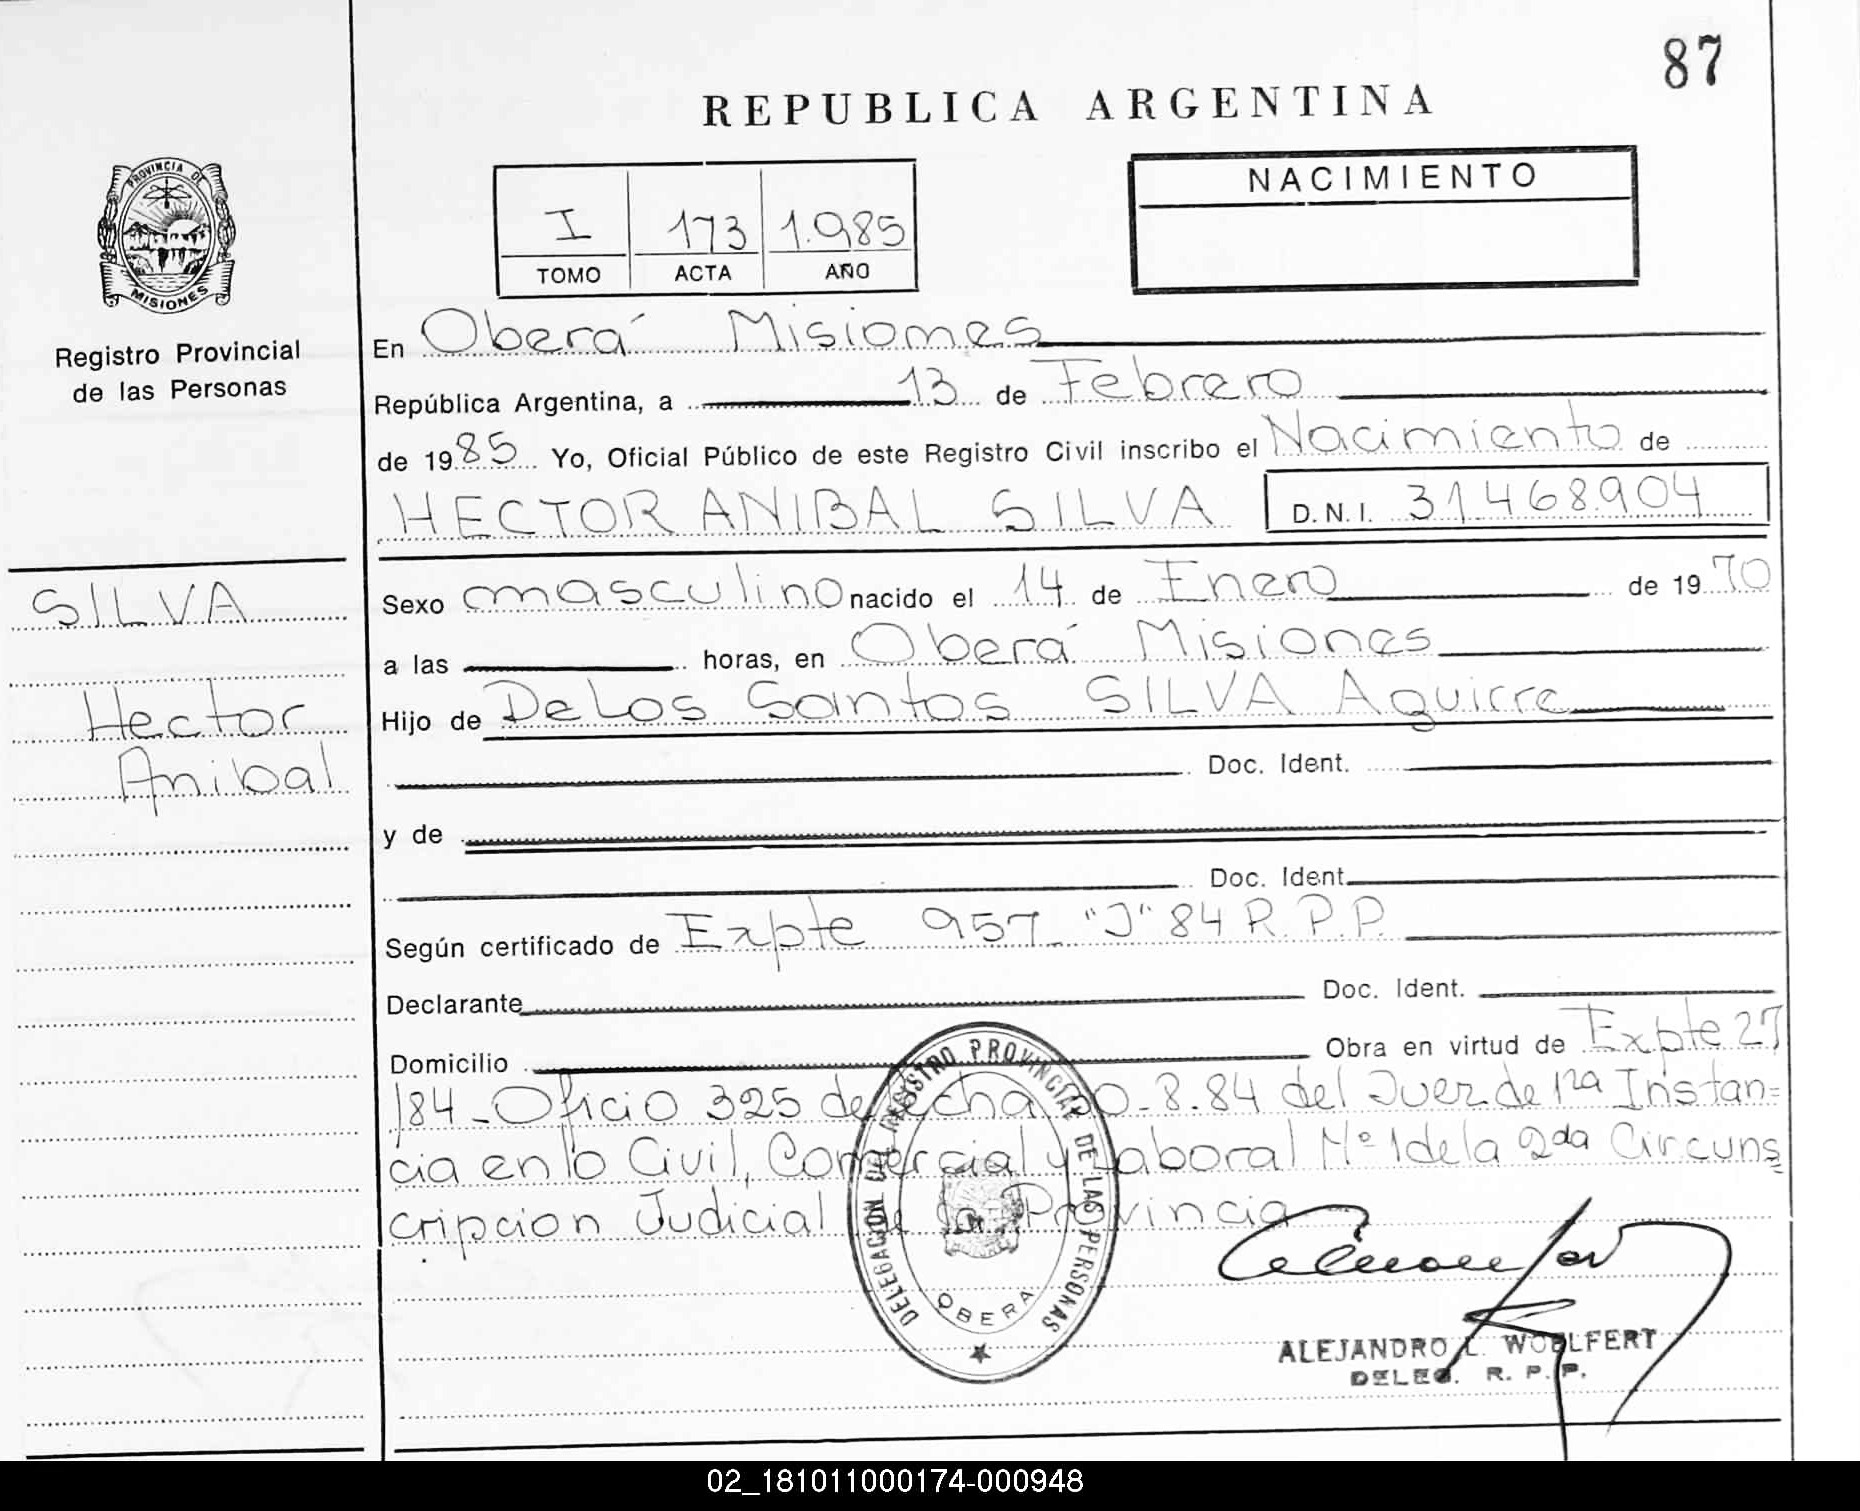 87
REPUBLICA ARGENTINA
PROVINCIA DE
MISIONES
Registro Provincial
de las Personas
I 173 1.985
TOMO ACTA AÑO
NACIMIENTO
En Oberá Misiones
República Argentina, a 13 de Febrero
de 1985 Yo, Oficial Público de este Registro Civil inscribo el Nacimiento de
HECTOR ANIBAL SILVA D.N.I. 31468904
SILVA
Hector
Anibal
Sexo masculino nacido el 14 de Enero de 1970
a las horas, en Oberá Misiones
Hijo de De Los Santos SILVA Aguirre
Doc. Ident.
y de
Doc. Ident.
Según certificado de Expte 957 "J" 84 R.P.P.
Declarante Doc. Ident.
Domicilio Obra en virtud de Expte 27
/84_Oficio 325 de fecha 8.84 del Juez de 1ra Instan=
cia en lo Civil, Comercial y Laboral Nº 1 de la 2da Circuns
cripcion Judicial de la Provincia
DELEGACION DEL REGISTRO PROVINCIAL DE LAS PERSONAS
OBERA
ALEJANDRO L. WOELFERT
DELEG. R. P. P.
02_181011000174-000948